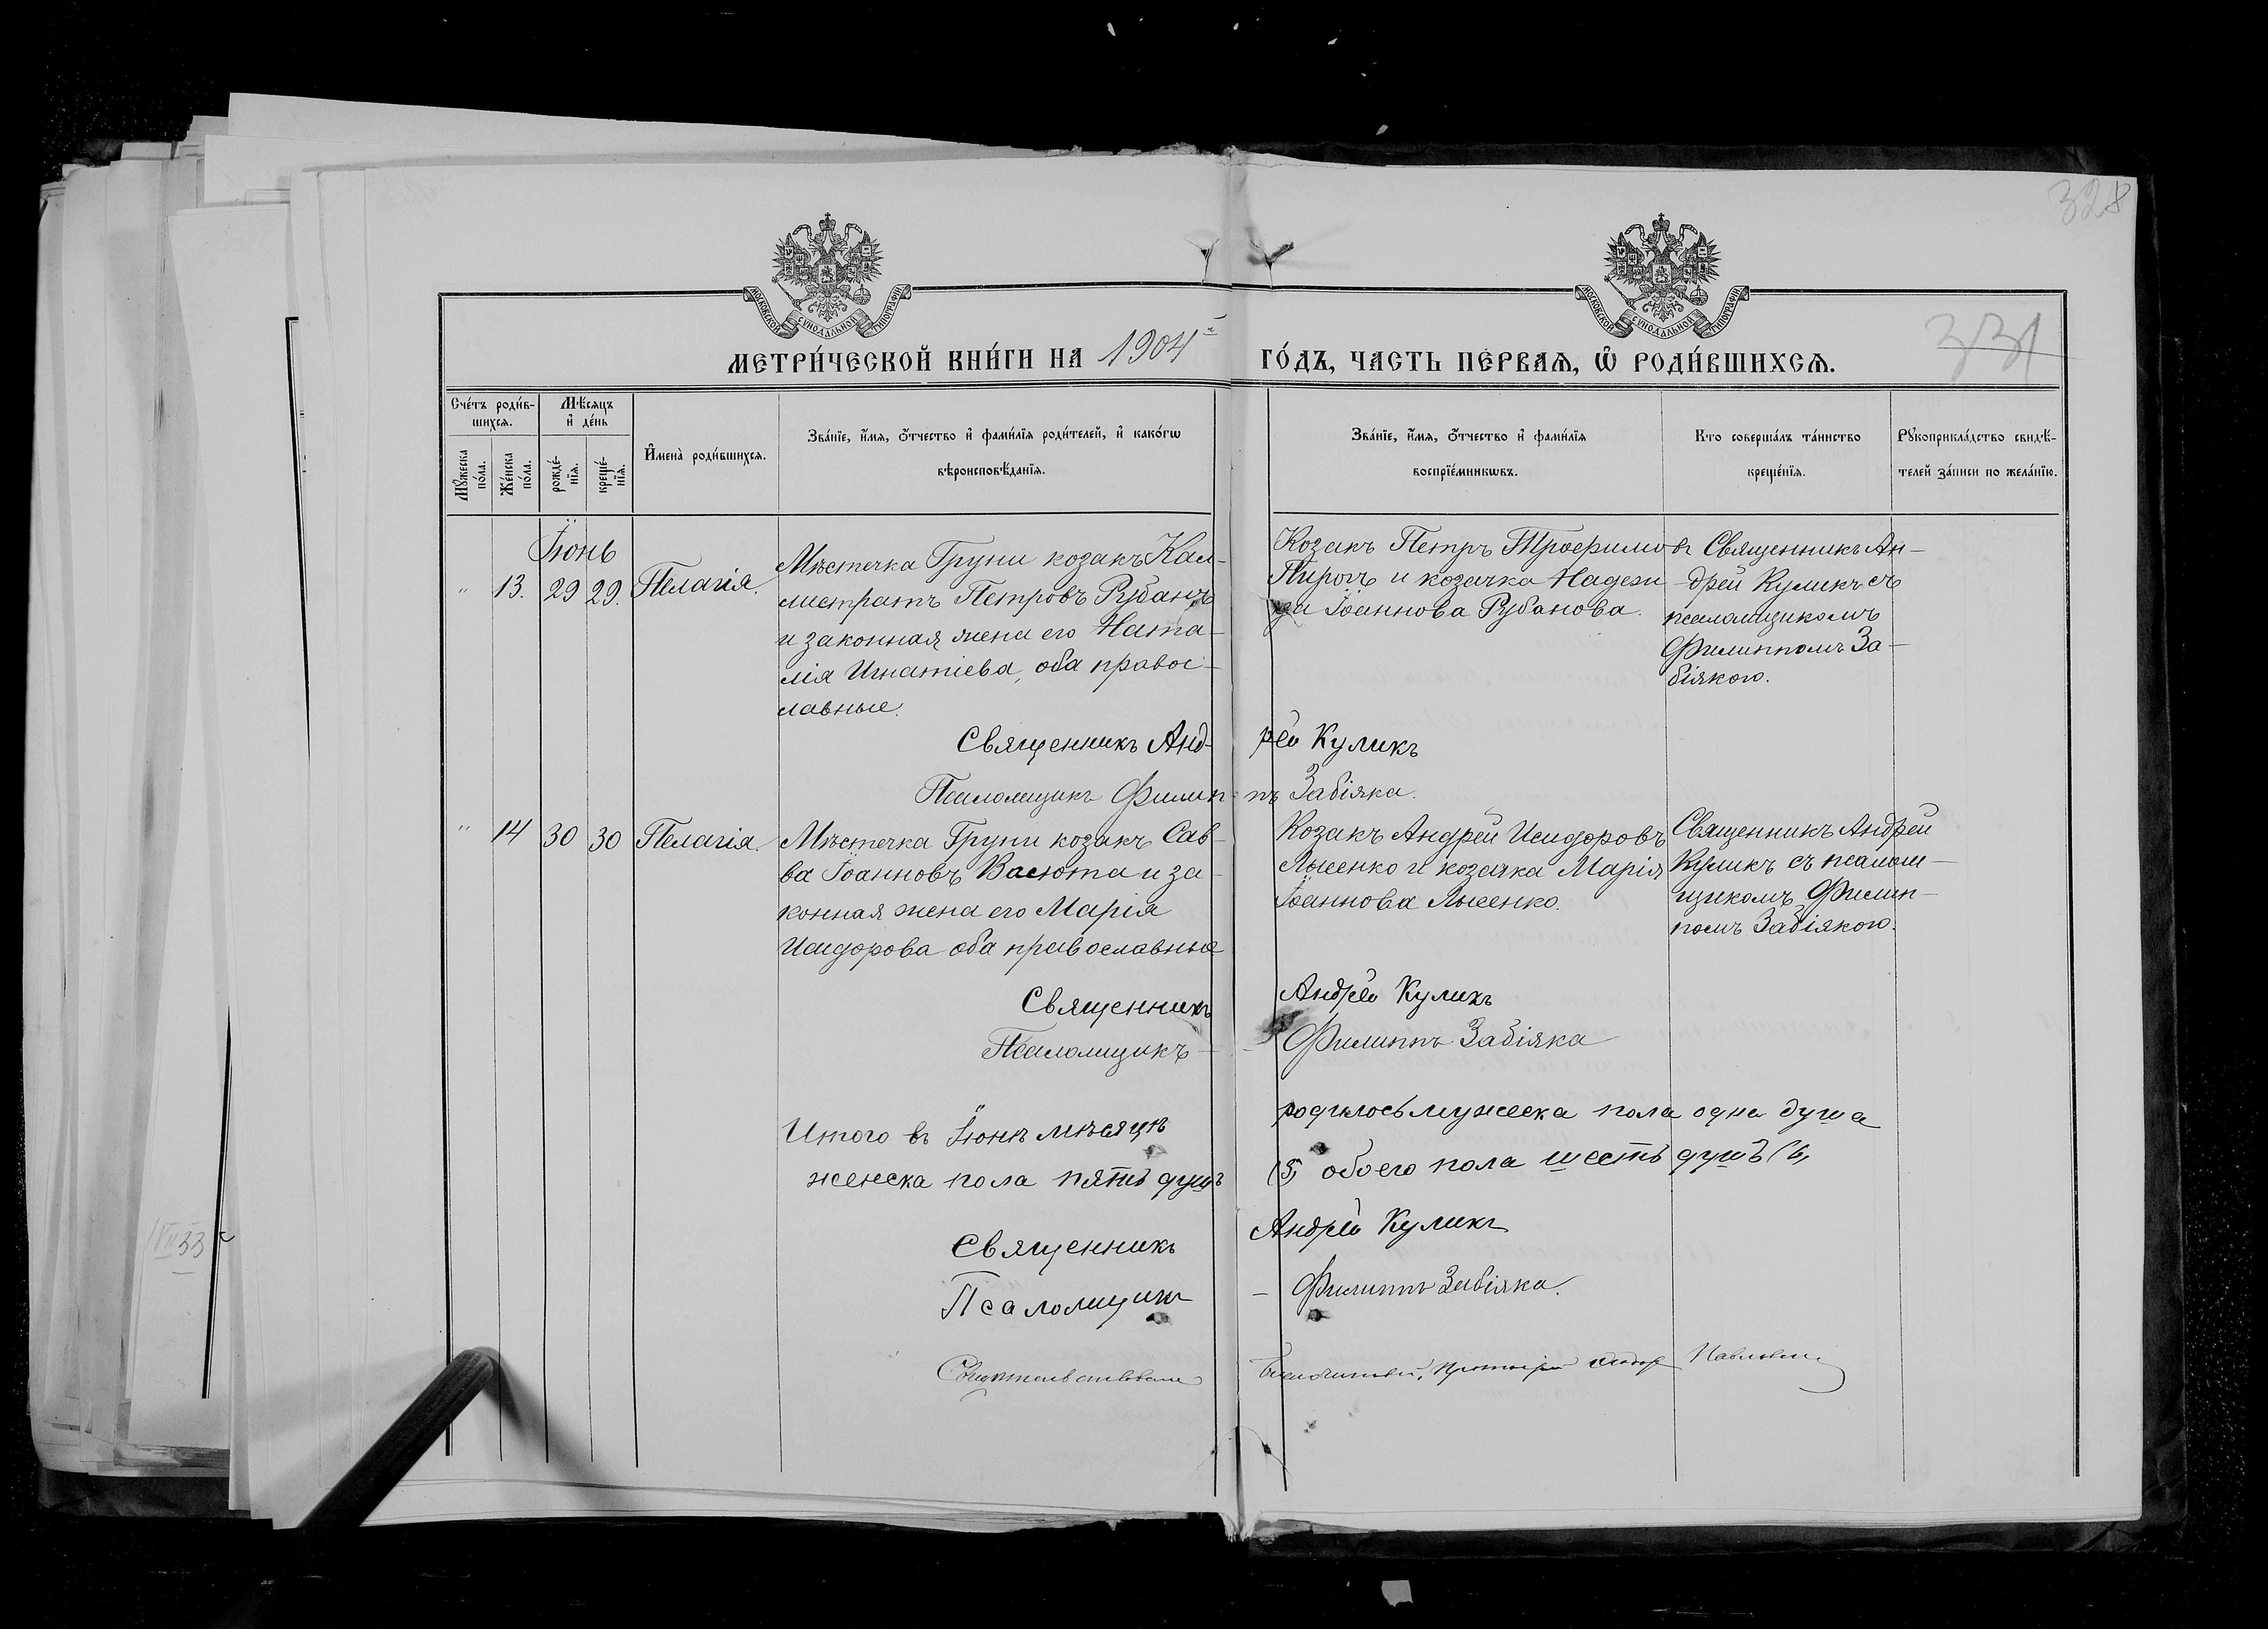 328
331
МОСКОВСКОЙ СѴНОДАЛЬНОЙ ТИПОГРАФІИ
МОСКОВСКОЙ СѴНОДАЛЬНОЙ ТИПОГРАФІИ
МЕТРИ́ЧЕСКОЙ КНИ́ГИ НА 1904 ГО́ДЪ, ЧАСТЬ ПЕ́РВАѦ, Ѡ҆ РОДИ́ВШИХСѦ.
Сче́тъ роди́в-
шихсѧ.
Мꙋ́жеска по́ла.
Же́нска по́ла.
Мѣ́сѧцъ
и҆ де́нь
рожде́-
нїѧ.
креще́-
нїѧ.
И҆мена̀ роди́вшихсѧ.
Зва́нїе, и҆́мѧ, ѻ҆́тчество и҆ фами́лїѧ роди́телей, и҆ како́гѡ
вѣроисповѣ́данїѧ.
Зва́нїе, и҆́мѧ, ѻ҆́тчество и҆ фами́лїѧ
воспрїе́мникѡвъ.
Кто соверша́лъ та́инство
креще́нїѧ.
Рꙋкоприкла́дство свидѣ́-
телей за́писи по жела́нїю.
Іюнь
" 13. 29 29. Пелагія.
Мѣстечка Груни козакъ Кал-
листратъ Петровъ Рубанъ
и законная жена его Ната-
лія Игнатіева, оба правос-
лавные.
Козакъ Петръ Трофимовъ
Пирогъ и козачка Надеж-
да Іоаннова Рубанова.
Священникъ Ан-
дрей Куликъ съ
псаломщикомъ
Филиппомъ За-
біякою.
Священникъ Андрей Куликъ
Псаломщикъ Филиппъ Забіяка.
" 14 30 30 Пелагія.
Мѣстечка Груни козакъ Сав-
ва Іоанновъ Васюта и за-
конная жена его Марія
Исидорова оба православные
Козакъ Андрей Исидоровъ
Лысенко и козачка Марія
Іоаннова Лысенко.
Священникъ Андрей
Куликъ съ псалом-
щикомъ Филип-
помъ Забіякою.
Священникъ Андрей Куликъ
Псаломщикъ - Филиппъ Забіяка
Итого въ Іюнѣ мѣсяцѣ родилось мужеска пола одна душа
женска пола пять душъ (5, обоего пола шесть душъ (6,
Священникъ Андрей Куликъ
Псаломщикъ - Филиппъ Забіяка.
Свидѣтельствовалъ Благочинный, Протоіерей
33